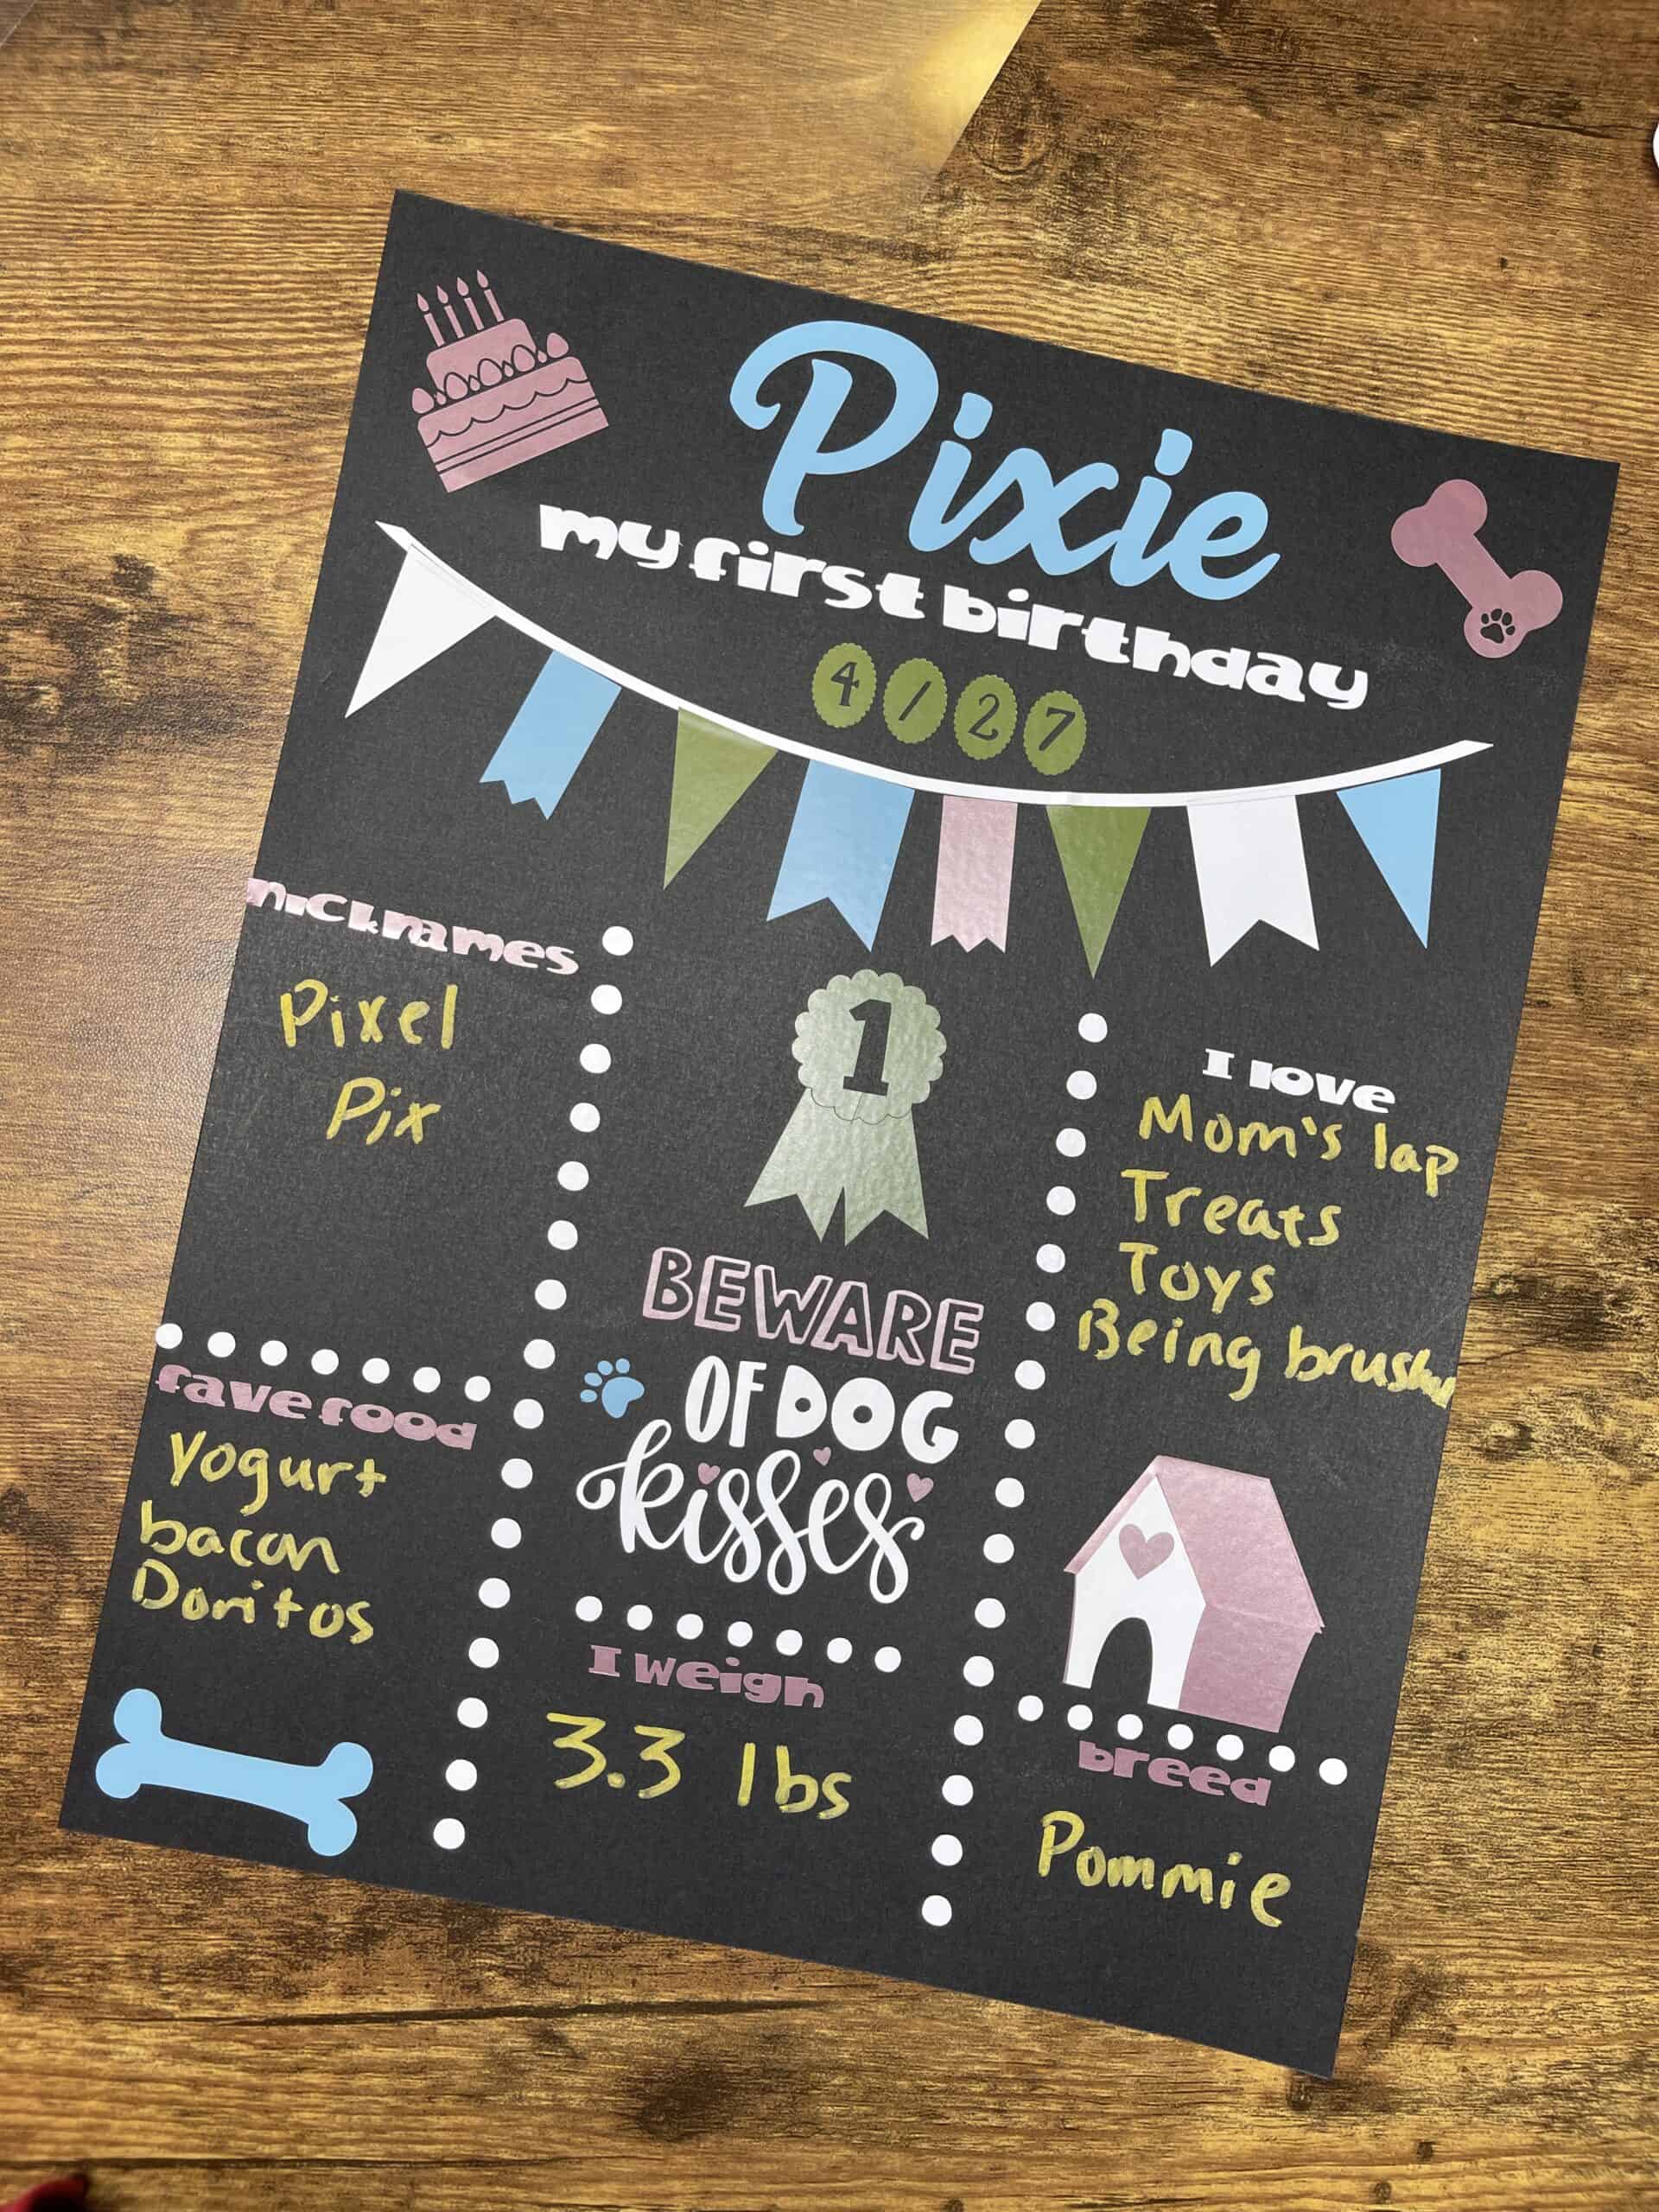 Pixie
my first birthday
4/27
nicknames
Pixel
Pix
fave food
Yogurt
bacon
Doritos
1
BEWARE
OF DOG
kisses
I weigh
3.3 lbs
I love
Mom's lap
Treats
Toys
Being brushed
breed
Pommie